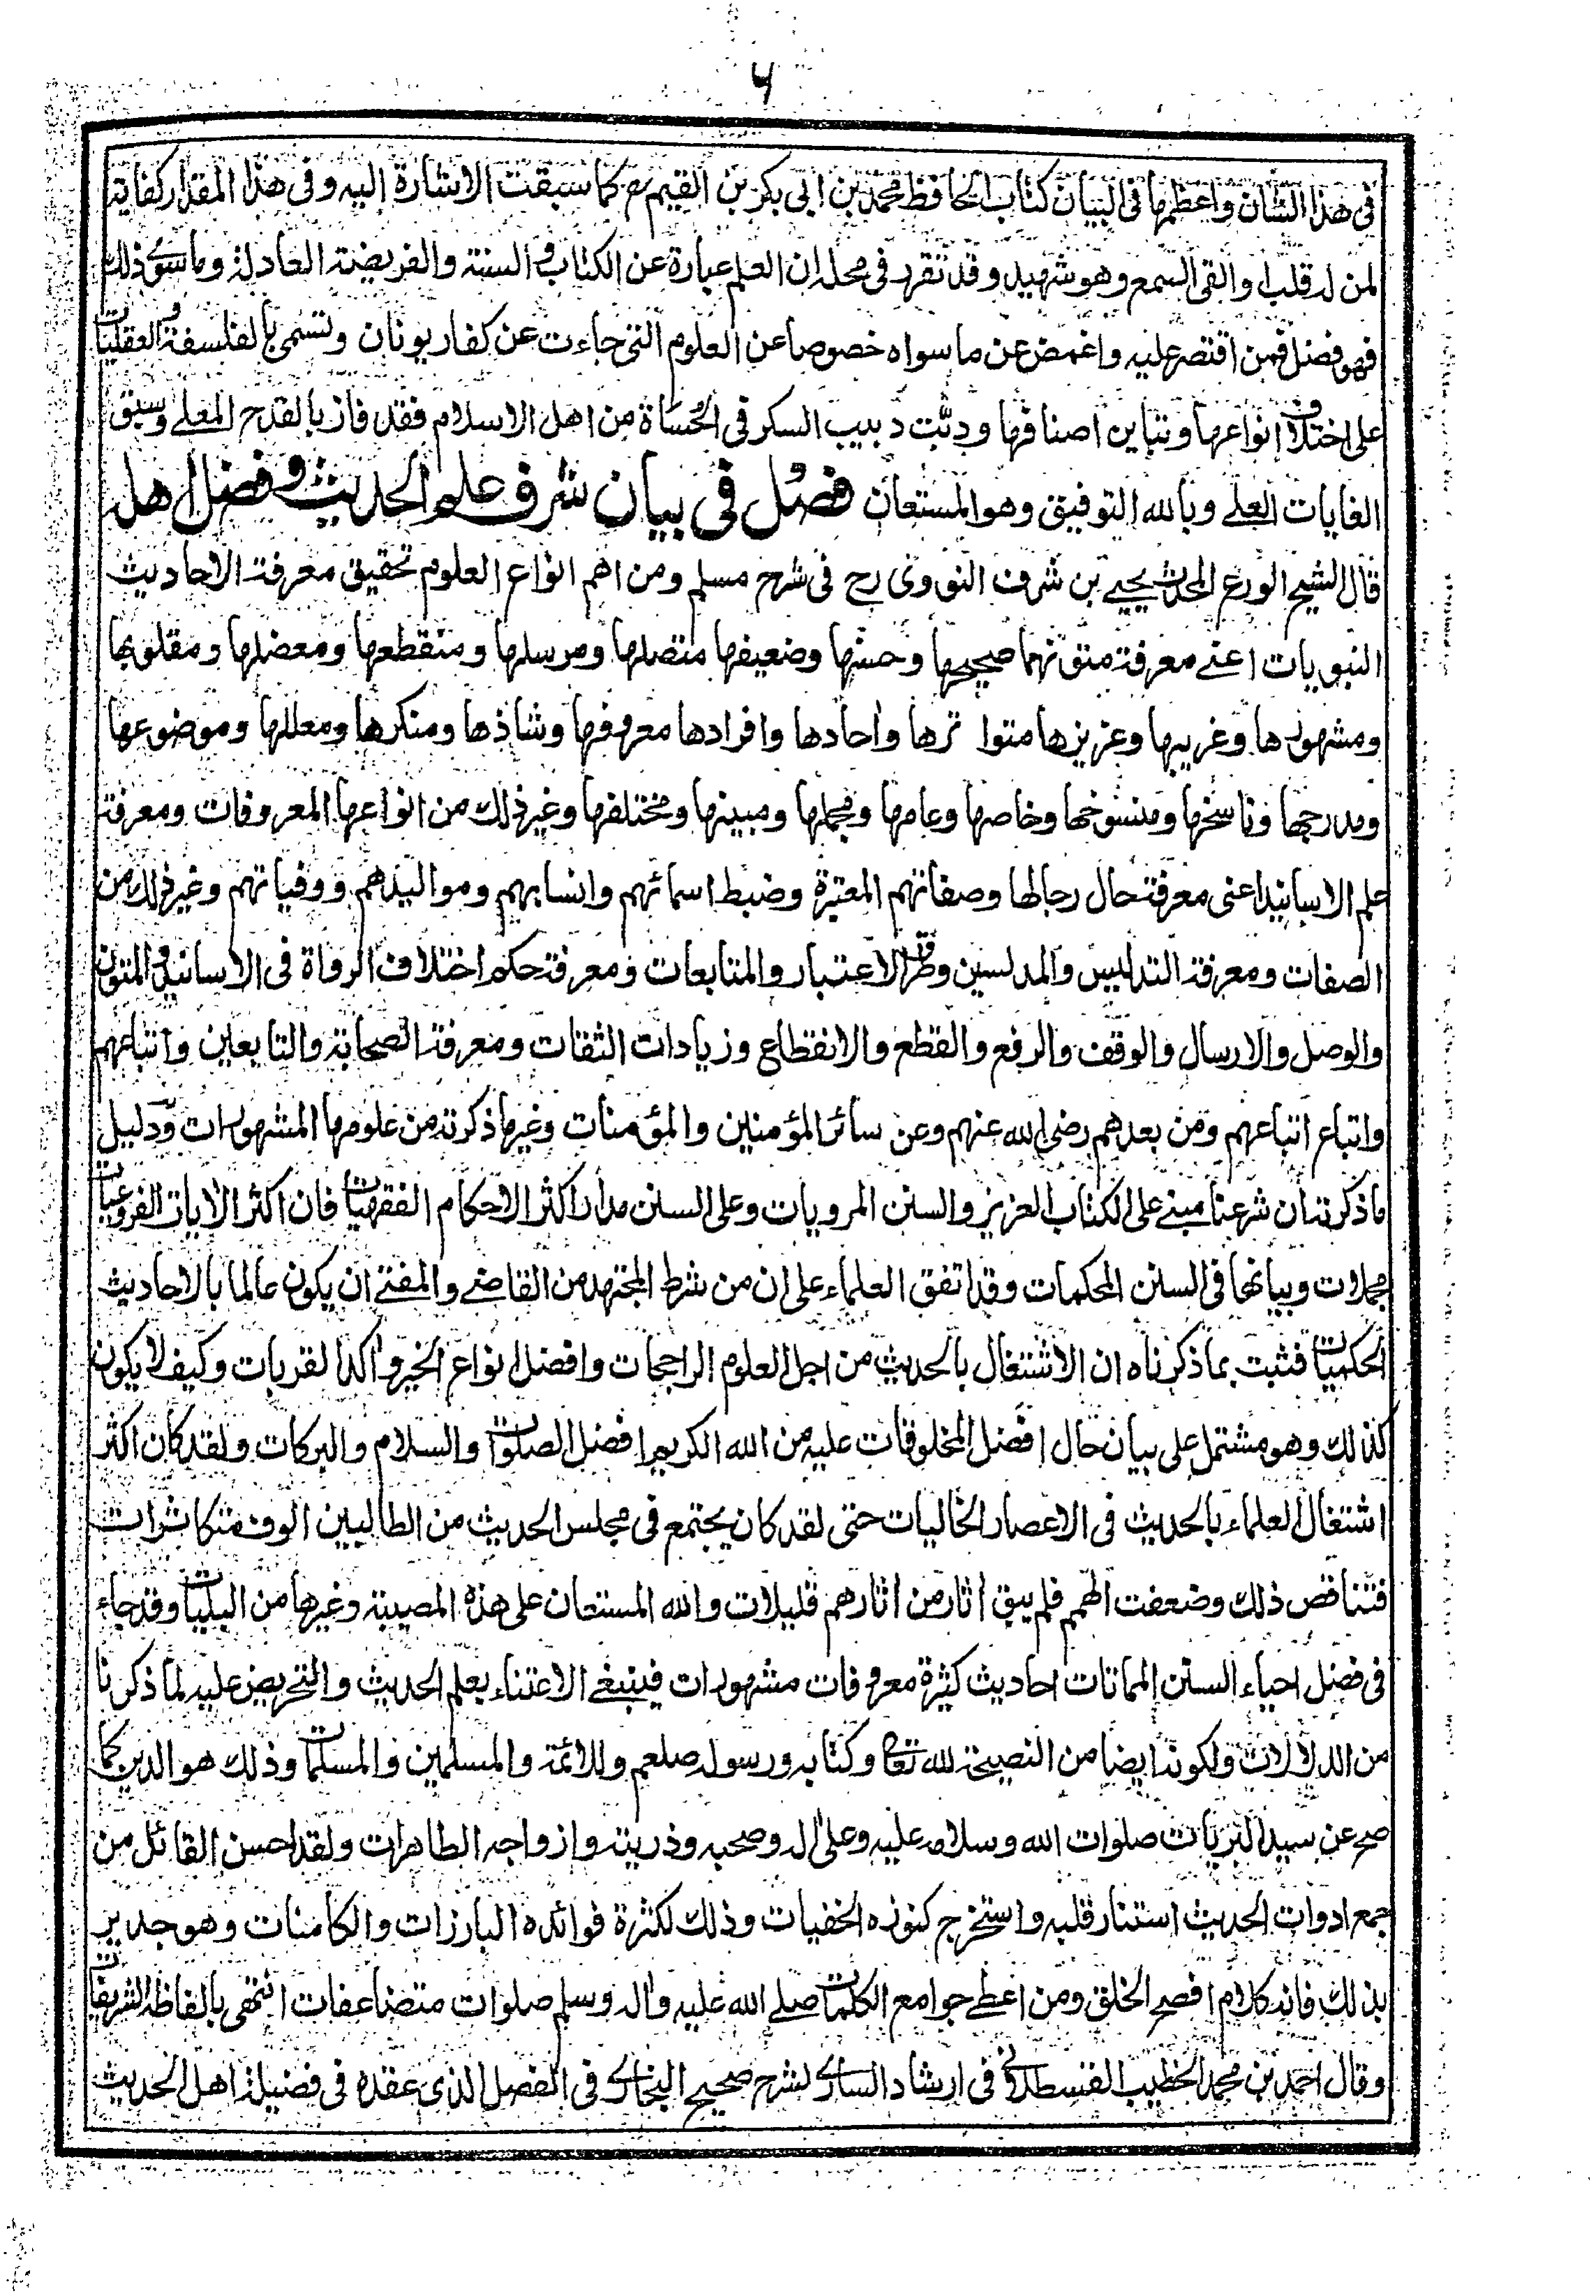 ٦
في هذا الشان واعظمها في البيان كتاب الحافظ محمد بن ابي بكر بن القيم رح كما سبقت الاشارة اليه وفي هذا المقدار كفاية
لمن له قلب او القى السمع وهو شهيد وقد تقرر في محله ان العلم عبارة عن الكتاب والسنة والفريضة العادلة وما سوى ذلك
فهو فضل فمن اقتصر عليه واغمض عن ما سواه خصوصا عن العلوم التي جاءت عن كفار يونان وتسمى بالفلسفة والعقليات
على اختلاف انواعها وتباين اصنافها ودبّت دبيب السكر في الحُسَاة من اهل الاسلام فقد فاز بالقدح المعلے وسبق
الغايات العلے وبالله التوفيق وهو المستعان فصل في بيان شرف علم الحديث وفضل اهله
قال الشيخ الورع المحدث يحيے بن شرف النووي رح في شرح مسلم ومن اهم انواع العلوم تحقيق معرفة الاحاديث
النبويات اعنے معرفة متونها صحيحها وحسنها وضعيفها متصلها ومرسلها ومنقطعها ومعضلها ومقلوبها
ومشهورها وغريبها وعزيزها متواترها واٰحادها وافرادها معروفها وشاذها ومنكرها ومعللها وموضوعها
ومدرجها وناسخها ومنسوخها وخاصها وعامها ومجملها ومبينها ومختلفها وغير ذلك من انواعها المعروفات ومعرفة
علم الاسانيد اعني معرفة حال رجالها وصفاتهم المعتبرة وضبط اسمائهم وانسابهم ومواليدهم ووفياتهم وغير ذلك من
الصفات ومعرفة التدليس والمدلسين وطرق الاعتبار والمتابعات ومعرفة حكم اختلاف الرواة في الاسانيد والمتون
والوصل والارسال والوقف والرفع والقطع والانقطاع وزيادات الثقات ومعرفة الصحابة والتابعين واتباعهم
واتباع اتباعهم ومن بعدهم رضي الله عنهم وعن سائر المؤمنين والمؤمنات وغير ما ذكرته من علومها المشهورات ودليل
ما ذكرته ان شرعنا مبنے على الكتاب العزيز والسنن المرويات وعلى السنن مدار اكثر الاحكام الفقهيات فان اكثر الاٰيات الفروعيات
مجملات وبيانها في السنن المحكمات وقد اتفق العلماء على ان من شرط المجتهد من القاضے والمفتے ان يكون عالما بالاحاديث
الحكميات فثبت بما ذكرناه ان الاشتغال بالحديث من اجل العلوم الراجحات وافضل انواع الخير واٰكد القربات وكيف لا يكون
كذلك وهو مشتمل على بيان حال افضل المخلوقات عليه من الله الكريم افضل الصلوات والسلام والبركات ولقد كان اكثر
اشتغال العلماء بالحديث في الاعصار الخاليات حتى لقد كان يجتمع في مجلس الحديث من الطالبين الوف متكاثرات
فتناقص ذلك وضعفت الهمم فلم يبق اٰثار من اٰثارهم قليلات والله المستعان على هذه المصيبة وغيرها من البليات وقد جاء
في فضل احياء السنن المماتات احاديث كثيرة معروفات مشهورات فينبغے الاعتناء بعلم الحديث والتحريض عليه لما ذكرنا
من الدلالات ولكونه ايضا من النصيحة لله تعا وكتابه ورسوله صلعم وللائمة والمسلمين والمسلمات وذلك هو الدين كما
صح عن سيد البريات صلوات الله وسلامه عليه وعلى اٰله وصحبه وذريته وازواجه الطاهرات ولقد احسن القائل من
جمع ادوات الحديث استنار قلبه واستخرج كنوزه الخفيات وذلك لكثرة فوائده البارزات والكامنات وهو جدير
بذلك فانه كلام افصح الخلق ومن اعطے جوامع الكلمات صلے الله عليه واٰله وسلم صلوات متضاعفات انتهى بالفاظه الشريفات
وقال احمد بن محمد الخطيب القسطلاني في ارشاد الساري لشرح صحيح البخاري في الفصل الذي عقده في فضيلة اهل الحديث